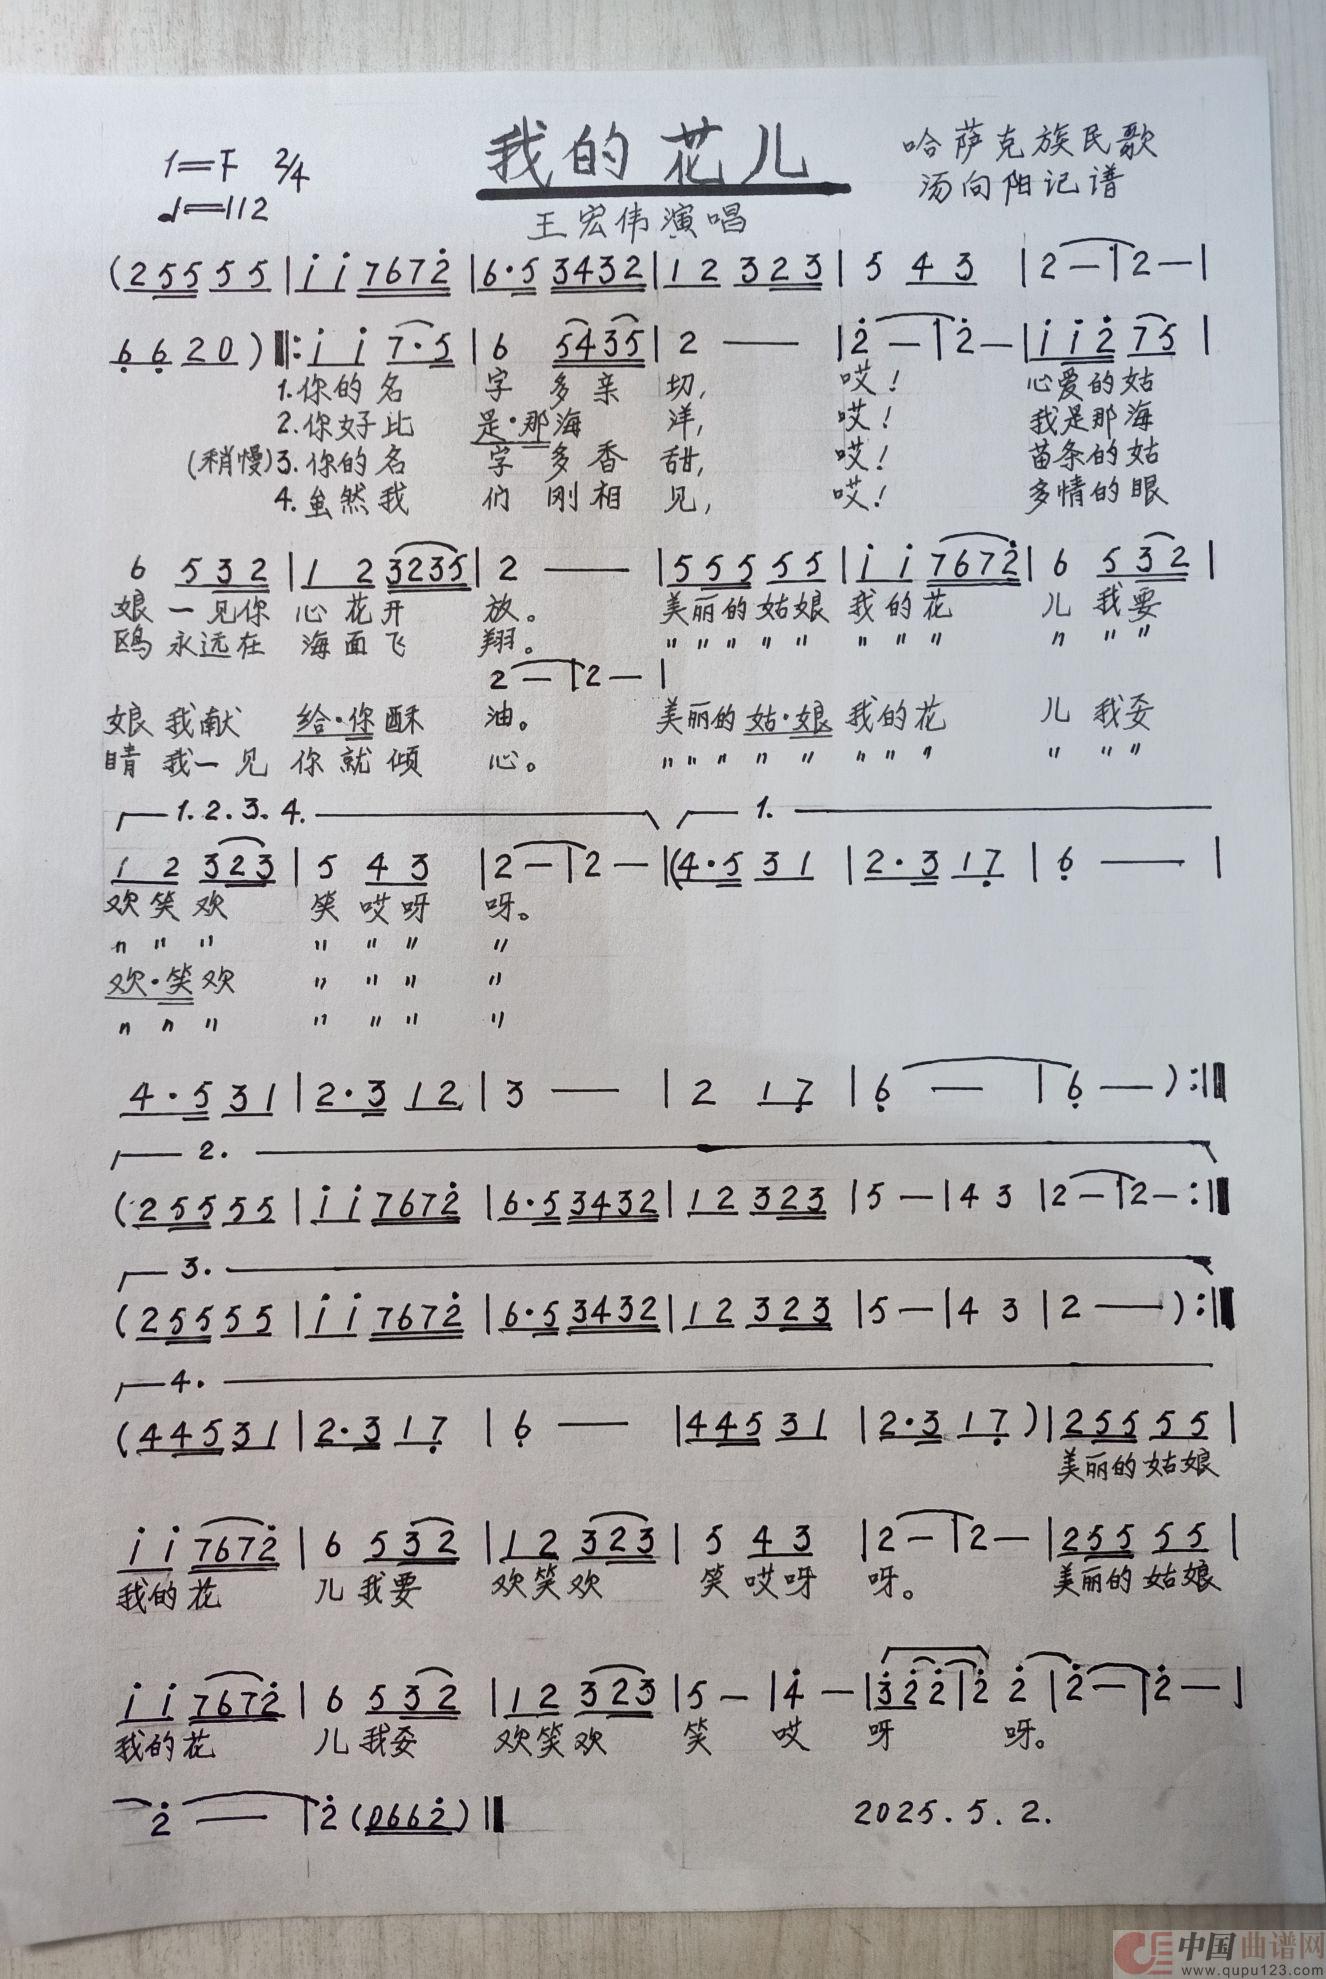 我的花儿
1=F 2/4
哈萨克族民歌
♩=112
汤向阳记谱
王宏伟演唱
(2 5 5 5 5 | i i 7 6 7 2 | 6·5 3 4 3 2 | 1 2 3 2 3 | 5 4 3 | 2 — | 2 — |
6 6 2 0 ) ‖: i i 7·5 | 6 5 4 3 5 | 2 — | 2 — | 2 — | i i 2 7 5 |
1.你的名 字 多亲 切, 哎! 心爱的姑
2.你好比 是·那海 洋, 哎! 我是那海
(稍慢)3.你的名 字 多香 甜, 哎! 苗条的姑
4.虽然我 们 刚相 见, 哎! 多情的眼
6 5 3 2 | 1 2 3 2 3 5 | 2 — | 5 5 5 5 5 | i i 7 6 7 2 | 6 5 3 2 |
娘 一见你 心花开 放。 美丽的姑娘 我的花 儿 我要
鸥 永远在 海面飞 翔。 〃〃〃〃〃 〃〃〃 〃 〃〃
2 — | 2 — |
娘 我献 给·你酥 油。 美丽的姑·娘 我的花 儿 我要
睛 我一见 你就倾 心。 〃〃〃〃〃 〃〃〃 〃 〃〃
1.2.3.4. 1.
1 2 3 2 3 | 5 4 3 | 2 — | 2 — | (4·5 3 1 | 2·3 1 7 | 6 — |
欢笑欢 笑 哎呀 呀。
〃〃〃 〃 〃〃 〃
欢·笑欢 〃 〃〃 〃
〃〃〃 〃 〃〃 〃
4·5 3 1 | 2·3 1 2 | 3 — | 2 1 7 | 6 — | 6 — ) :‖
2.
(2 5 5 5 5 | i i 7 6 7 2 | 6·5 3 4 3 2 | 1 2 3 2 3 | 5 — | 4 3 | 2 — | 2 — :‖
3.
(2 5 5 5 5 | i i 7 6 7 2 | 6·5 3 4 3 2 | 1 2 3 2 3 | 5 — | 4 3 | 2 — ) :‖
4.
(4 4 5 3 1 | 2·3 1 7 | 6 — | 4 4 5 3 1 | 2·3 1 7 ) | 2 5 5 5 5 |
美丽的姑娘
i i 7 6 7 2 | 6 5 3 2 | 1 2 3 2 3 | 5 4 3 | 2 — | 2 — | 2 5 5 5 5 |
我的花 儿我要 欢笑欢 笑 哎呀 呀。 美丽的姑娘
i i 7 6 7 2 | 6 5 3 2 | 1 2 3 2 3 | 5 — | 4 — | 3 2 2 | 2 2 | 2 — | 2 — |
我的花 儿我要 欢笑欢 笑 哎 呀 呀。
2 — | 2 (0 6 6 2) ‖
2025.5.2.
中国曲谱网
www.qupu123.com